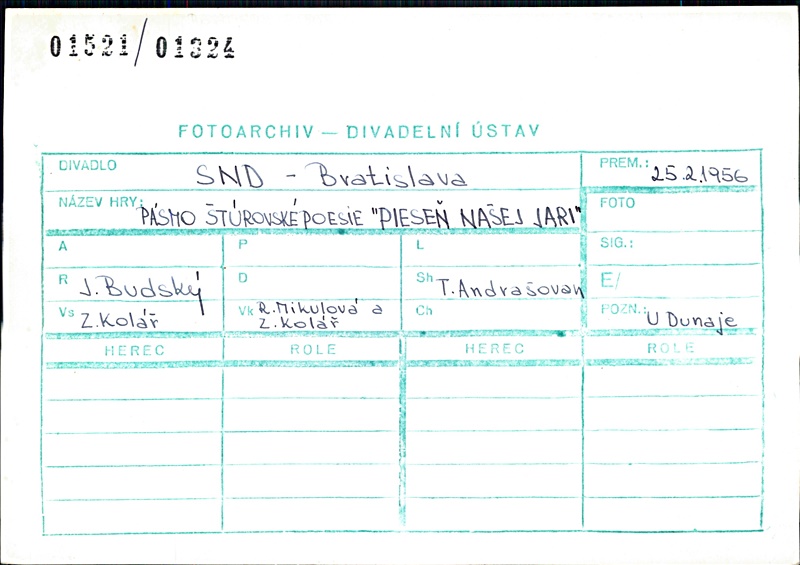 01521/01324
FOTOARCHIV — DIVADELNÍ ÚSTAV
DIVADLO SND - Bratislava PREM.: 25.2.1956
NÁZEV HRY: PÁSMO ŠTÚROVSKÉ POESIE "PIESEŇ NAŠEJ JARI" FOTO
A P L SIG.:
R J. Budský D Sh T. Andrašovan E/
Vs Z. Kolář Vk R. Mikulová a Z. Kolář Ch POZN.: U Dunaje
HEREC ROLE HEREC ROLE